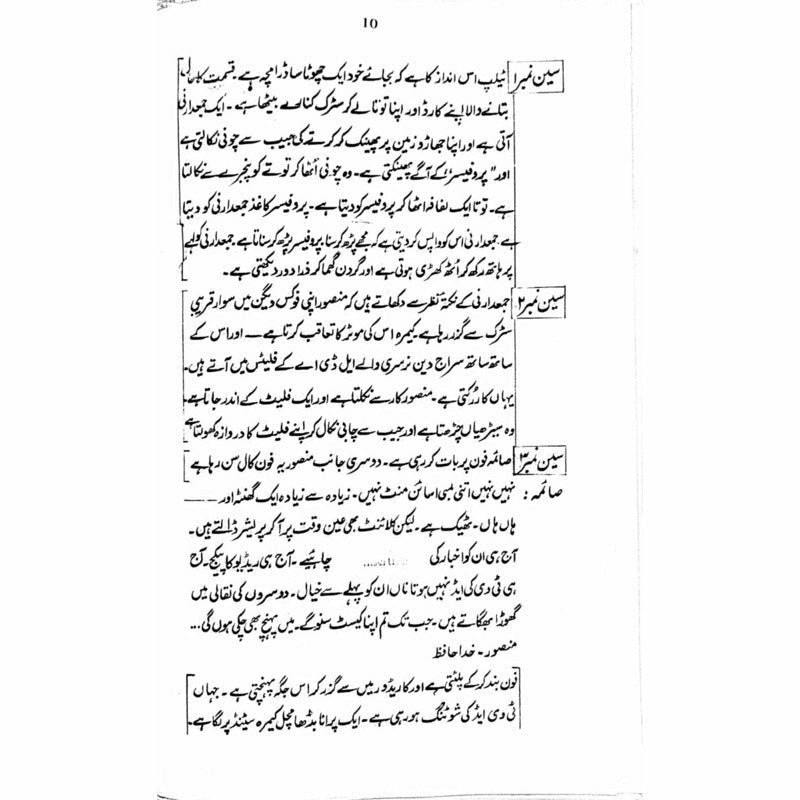 10
سین نمبر ۱ ٹیلپ اس انداز کا ہے کہ بجائے خود ایک چھوٹا سا ڈرامچہ ہے۔ قسمت کا حال
بتانے والا اپنے کارڈ اور اپنا توتا لے کر سڑک کنارے بیٹھا ہے۔ ایک جمعدارنی
آتی ہے اور اپنا جھاڑو زمین پر پھینک کر کرتے کی جیب سے چونی نکالتی ہے
اور "پروفیسر" کے آگے پھینکتی ہے۔ وہ چونی اُٹھا کر توتے کو پنجرے سے نکالتا
ہے۔ توتا ایک لفافہ اٹھا کر پروفیسر کو دیتا ہے۔ پروفیسر کاغذ جمعدارنی کو دیتا
ہے جمعدارنی اس کو واپس کر دیتی ہے کہ مجھے پڑھ کر سنا۔ پروفیسر پڑھ کر سناتا ہے جمعدارنی کولہے
پر ہاتھ رکھ کر اُٹھ کھڑی ہوتی ہے اور گردن گھما کر ذرا دور دیکھتی ہے۔
سین نمبر ۲ جمعدارنی کے نکتۂ نظر سے دکھاتے ہیں کہ منصور اپنی فوکس ویگن میں سوار قریبی
سڑک سے گزر رہا ہے کیمرہ اس کی موٹر کا تعاقب کرتا ہے — اور اس کے
ساتھ ساتھ سراج دین نرسری والے ایل ڈی اے کے فلیٹس میں آتے ہیں۔
یہاں کار رُکتی ہے۔ منصور کار سے نکلتا ہے اور ایک فلیٹ کے اندر جاتا ہے۔
وہ سیڑھیاں چڑھتا ہے اور جیب سے چابی نکال کر اپنے فلیٹ کا دروازہ کھولتا ہے
سین نمبر ۳ صائمہ فون پر بات کر رہی ہے۔ دوسری جانب منصور یہ فون کال سن رہا ہے
صائمہ : نہیں نہیں اتنی لمبی اسائن منٹ نہیں۔ زیادہ سے زیادہ ایک گھنٹہ اور ——
ہاں ہاں۔ ٹھیک ہے۔ لیکن کلائنٹ بھی عین وقت پر آ کر پریشر ڈالتے ہیں۔
آج ہی ان کو اخبار کی چاہیے۔ آج ہی ریڈیو کا پیکج۔ آج
ہی ٹی وی کی ایڈ نہیں ہوتا ناں ان کو پہلے سے خیال۔ دوسروں کی نقالی میں
گھوڑا بھگاتے ہیں۔ جب تک تم اپنا کیسٹ سنو گے۔ میں پہنچ بھی چکی ہوں گی...
منصور۔ خدا حافظ
فون بند کر کے پلٹتی ہے اور کاریڈور میں سے گزر کر اس جگہ پہنچتی ہے۔ جہاں
ٹی وی ایڈ کی شوٹنگ ہو رہی ہے۔ ایک پرانا بڈھا مچل کیمرہ سٹینڈ پر لگا ہے۔